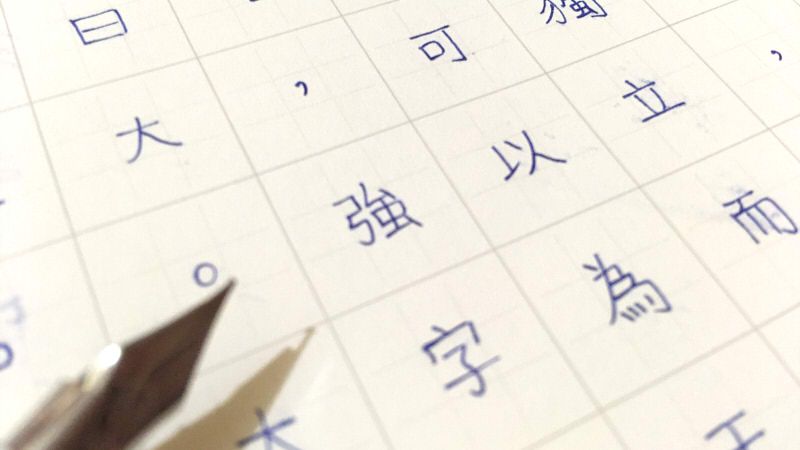 ，
獨立而
可以為
，強字
曰大。大